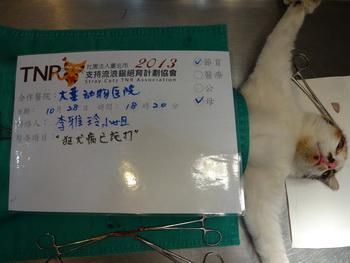 TNR 社團法人臺北市 2013
支持流浪貓絕育計劃協會
Stray Cats TNR Association
合作醫院：大華动物医院
日期：10月28日 時間：18時20分
李雅玲小姐
"狂犬病已施打"
✓節育
□醫療
○公
✓母